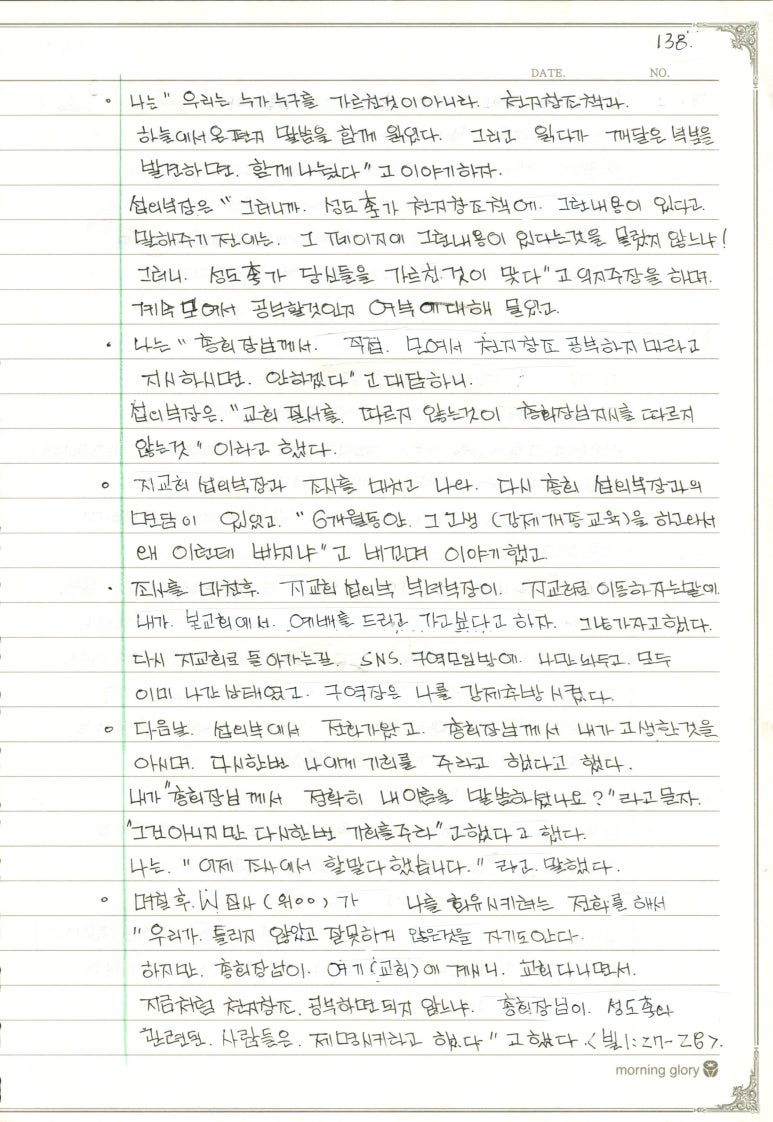 138.
DATE. NO.
나는 " 우리는 누가 누구를 가르친것이 아니라. 천지창조책과.
하늘에서온편지 말씀을 함께 읽었다. 그리고 읽다가 깨달은 부분을
발견하면. 함께 나눴다" 고 이야기하자.
섭외부장은 " 그러니까. 성도 가 천지창조책에. 그런내용이 있다고.
말해주기 전에는. 그 페이지에 그런내용이 있다는것을 몰랐지 않느냐!
그러니. 성도 가 당신들을 가르친 것이 맞다" 고 억지주장을 하며.
계속 모여서 공부할것인지 여부에대해 물었고.
• 나는 " 총회장님께서. 직접. 모여서 천지창조 공부하지 마라고
지시하시면. 안하겠다" 고 대답하니.
섭외부장은. "교회 질서를. 따르지 않는것이 총회장님지시를 따르지
않는것 " 이라고 했다.
지교회 섭외부장과 조사를 마치고 나와. 다시 총회 섭외부장과의
면담이 있었고. " 6개월동안. 그 고생 (강제개종교육)을 하고와서
왜 이런데 빠지냐" 고 비꼬며 이야기했고.
• 조사를 마친후. 지교회 섭외부 부녀부장이. 지교회로 이동하자는말에.
내가. 본교회에서. 예배를 드리고 가고싶다고 하자. 그냥가자고했다.
다시 지교회로 돌아가는길. SNS. 구역모임방에. 나만 놔두고. 모두
이미 나간상태였고. 구역장은 나를 강제추방 시켰다.
다음날. 섭외부에서 전화가왔고. 총회장님께서 내가 고생한것을
아시며. 다시한번 나에게 기회를 주라고 하셨다고 했다.
내가 "총회장님 께서 정확히 내이름을 말씀하셨나요?" 라고 묻자.
"그건아니지만 다시한번 기회를주라" 고했다고 했다.
나는. " 이제 조사에서 할말다했습니다. " 라고. 말했다.
며칠후. W 집사 (위○○) 가 나를 회유시키려는 전화를 해서
" 우리가. 틀리지 않았고 잘못하지 않은것을 자기도안다.
하지만. 총회장님이. 여기(교회)에 계시니. 교회다니면서.
지금처럼 천지창조. 공부하면되지 않느냐. 총회장님이. 성도 와
관련된. 사람들은. 제명시키라고 했다" 고 했다.<빌1:27-28>.
morning glory